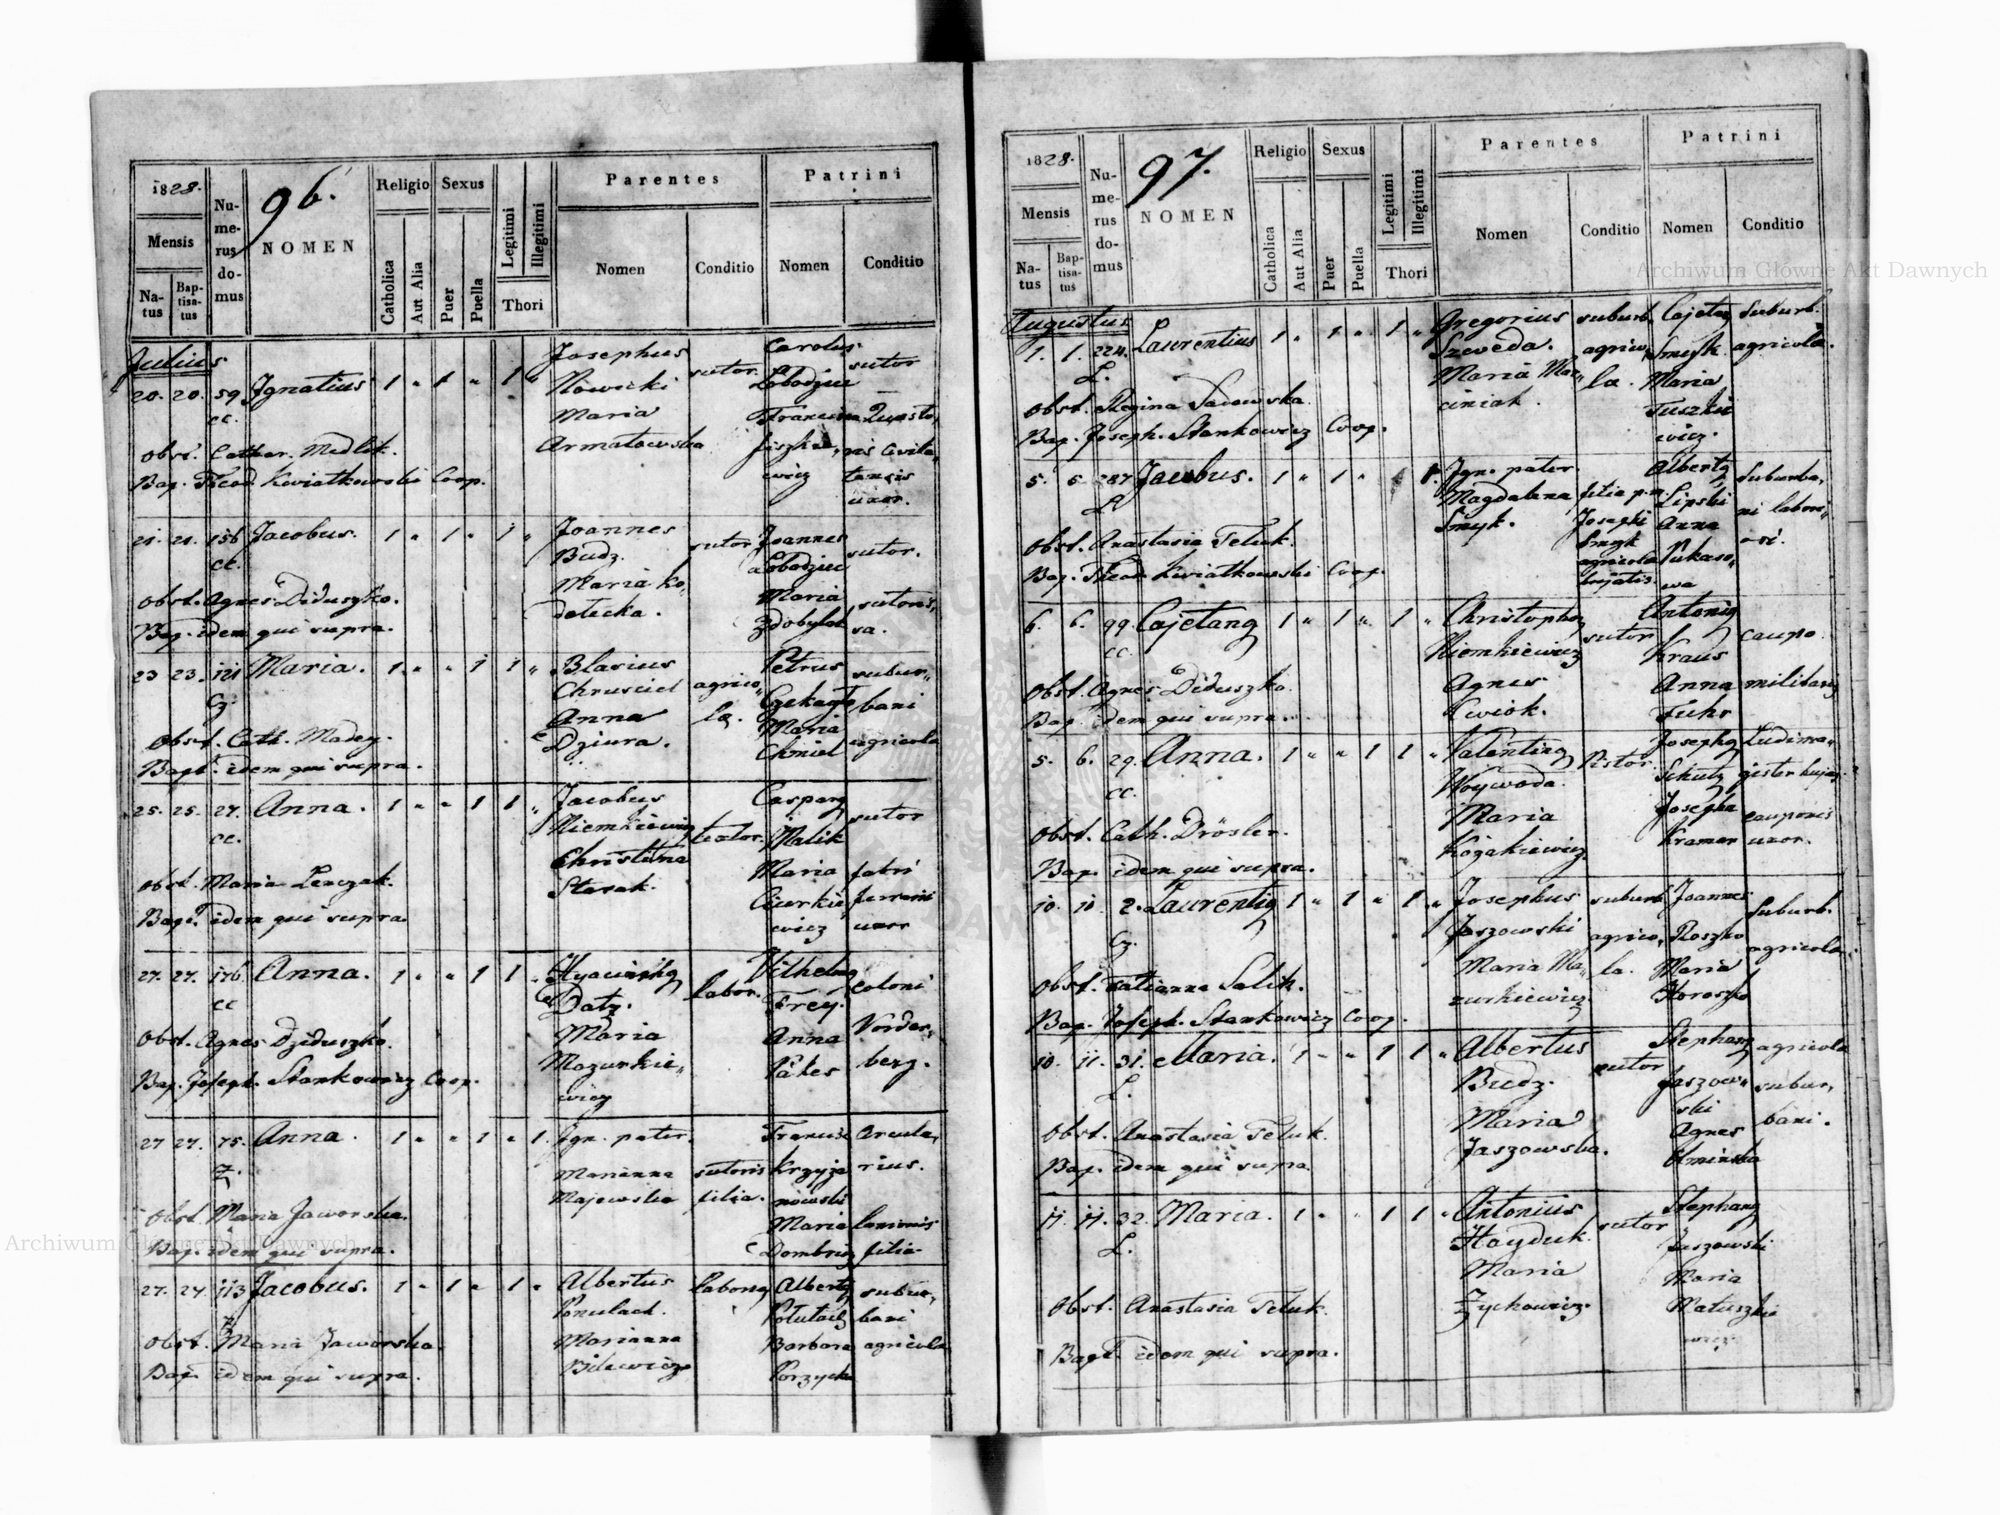 1828.
96.
Mensis
Natus
Baptisatus
Numerus domus
NOMEN
Religio
Catholica
Aut Alia
Sexus
Puer
Puella
Legitimi
Illegitimi
Thori
Parentes
Nomen
Conditio
Patrini
Nomen
Conditio
Julius
20. 20. 59 Ignatius 1 " 1 " 1 "
cc.
Josephus
Nowicki
Maria
Armatowska
sutor.
Carolus
Łobodziec
sutor
Obst. Cathar. Medlik.
Bap. Theod Kwiatkowski Coop.
21. 21. 156 Jacobus. 1 " 1 " 1 "
cc.
Joannes
Budz.
Maria
sutor
Joannes
Łobodziec
Maria
sutor.
Obst. Agnes Diduszko.
Bap. idem qui supra.
23 23. 121 Maria. 1 " " 1 1 "
Blasius
Chrusciel
Anna
Dziura.
agrico„
la.
Petrus
Maria
Chmiel
subur„
bani
agricola
Obst. Cath. Madey.
Bapt. idem qui supra.
25. 25. 27. Anna. 1 " " 1 1 "
cc.
Jacobus
Niemkiewicz
Christina
Starak.
textor.
Malik
Maria
sutor
fabri
ferrarii
uxor
Obst. Maria Lenczak.
Bapt. idem qui supra.
27. 27. 176. Anna. 1 " " 1 1 "
cc
Hyacinthg
Datz.
Maria
Mazurkie„
wicz
labor.
Vilhelmg
Frey.
Anna
coloni
Vorder„
berg.
Obst. Agnes Dziduszko.
Bap. Joseph. Stankowicz Coop.
27 27. 75. Anna. 1 " " 1 " 1.
Z.
Ign. pater.
Marianna
Majewska
sutoris
filia.
Krzyża
nowski
Maria
Arcula„
rius.
filia
Obst. Maria Jaworska.
Bap. idem qui supra.
27. 27. 113 Jacobus. 1 " 1 " 1 "
Albertus
Marianna
Bilewicz
Albertg
Barbara
subur„
bani
agricola
Obst. Maria Jaworska.
Bap. idem qui supra.
1828.
97.
Mensis
Natus
Baptisatus
Numerus domus
NOMEN
Religio
Catholica
Aut Alia
Sexus
Puer
Puella
Legitimi
Illegitimi
Thori
Parentes
Nomen
Conditio
Patrini
Nomen
Conditio
Augustus
1. 1. 224. Laurentius 1 " 1 " 1 "
L.
Gregorius
Szweda.
Maria Mar„
ciniak.
suburb.
agrico„
la.
Cajetg
Smyk.
Maria
Tuszkie
wicz.
Suburb.
agricola.
Obst. Regina Sadowska.
Bap. Joseph. Stankowicz Coop.
5. 5. 287 Jacobus. 1 " 1 " 1.
L.
Ign. pater
Magdalena
Smyk.
filia p.m.
Josephi
Smyk
agricola
Albertg
Lipski
Anna
Suburba„
ni labori„
osi.
Obst. Anastasia Teluk.
Bap. Theod. Kwiatkowski Coop.
6. 6. 99. Cajetang 1 " 1 " 1 "
cc.
Christophg
Niemkiewicz
Agnes
Kwiok.
sutor
Antonig
Kraus
Anna
Fuhr
caupo
militaris
Obst. Agnes Diduszko.
Bap. idem qui supra.
5. 6. 29. Anna. 1 " " 1 1 "
cc.
Valenting
Woywoda.
Maria
Kozakiewicz
Pistor.
Josephg
Schutz
Josepha
Kramer
Ludima„
gister hujas.
cauponis
uxor.
Obst. Cath. Drösler.
Bap. idem qui supra.
10. 10. 2. Laurentig 1 " 1 " 1 "
Josephus
Jaszowski
Maria Ma„
zurkiewicz
suburb.
agrico„
la.
Joannes
Roszko
Maria
Horoszko
Suburb.
agricola.
Obst. Tatianna Salik.
Bap. Joseph. Stankowicz Coop.
10. 11. 31. Maria. 1 " " 1 1 "
L.
Albertus
Budz.
Maria
Jaszowska.
sutor
Stephang
Jaszow„
ski
Agnes
agricola
subur„
bani.
Obst. Anastasia Teluk.
Bap. idem qui supra
11. 11. 32. Maria. 1 " " 1 1 "
L.
Antonius
Hayduk.
Maria
Zychowicz.
sutor
Stephang
Jaszowski
Maria
Matuszkie
wicz
Obst. Anastasia Teluk.
Bapt. idem qui supra.
Archiwum Główne Akt Dawnych
Archiwum Główne Akt Dawnych